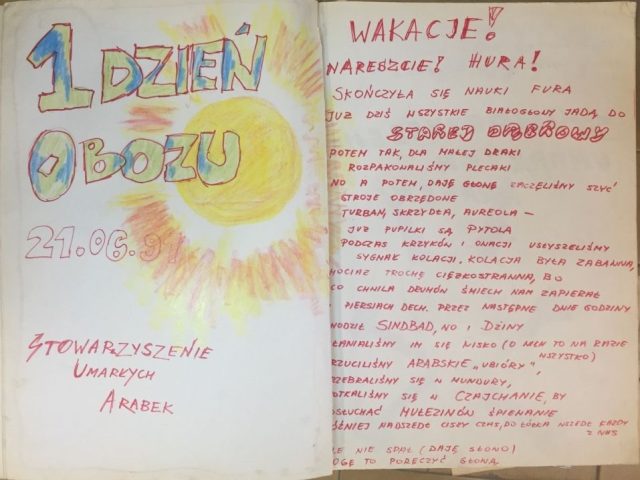 1 DZIEŃ
OBOZU
21.06.91
STOWARZYSZENIE
UMARŁYCH
ARABEK
WAKACJE!
NARESZCIE! HURA!
SKOŃCZYŁA SIĘ NAUKI FURA
JUŻ DZIŚ WSZYSTKIE BIAŁOGŁOWY JADĄ DO
STAREJ DĄBROWY
POTEM TAK, DLA MAŁEJ DRAKI
ROZPAKOWALIŚMY PLECAKI
NO A POTEM, DAJĘ GŁOWĘ ZACZĘLIŚMY SZYĆ
STROJE OBRZĘDOWE
TURBAN, SKRZYDŁA, AUREOLA –
JUŻ PUPILKI SĄ PYTOLA
PODCZAS KRZYKÓW I OWACJI USŁYSZELIŚMY
SYGNAŁ KOLACJI. KOLACJA BYŁA ZABAWNA,
HOCIAŻ TROCHĘ CIĘŻKOSTRAWNA, BO
CO CHWILA DRUHÓW ŚMIECH NAM ZAPIERAŁ
W PIERSIACH DECH. PRZEZ NASTĘPNE DWIE GODZINY
HODZIŁ SINDBAD, NO I DŻINY
ŁANIALIŚMY IM SIĘ NISKO (O NICH TO NA RAZIE
WSZYSTKO)
RZUCILIŚMY ARABSKIE „UBIÓRY",
ZEBRALIŚMY SIĘ W MUNDURY,
OTKALIŚMY SIĘ W CZAJCHANIE, BY
OSŁUCHAĆ MUEZINÓW ŚPIEWANIE
ÓŹNIEJ NADSZEDŁ CISZY CZAS, DO ŁÓŻKA WSZEDŁ KAŻDY
Z NAS
LE NIE SPAŁ (DAJĘ SŁOWO)
OGĘ TO PORĘCZYĆ GŁOWĄ